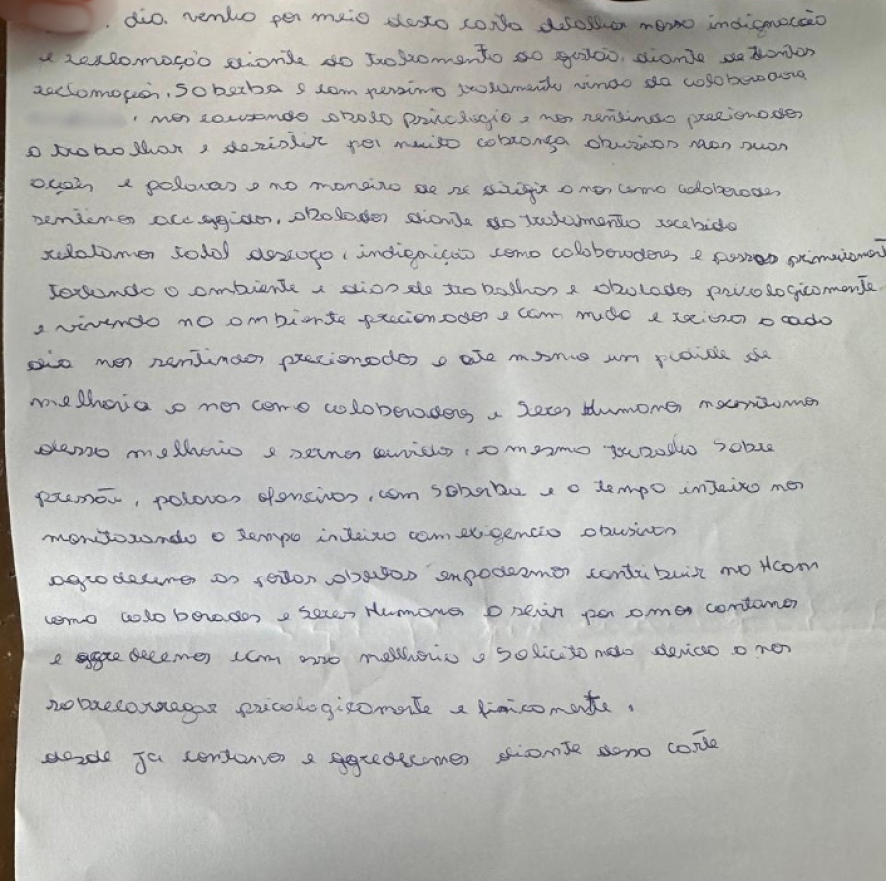 dia. venho por meio desta carta detalhar nossa indignaccão
e reclamação diante do tratamento da gestão, diante de tantas
reclamação. Soberba e com pessimo tratamento vindo da colaboradora
, nos causando abalo psicologio e nos sentindo precionados
a trabalhar e desistir por muito cobrança abusivas nas suas
ações e palavas e na maneira de se dirigir a nos como colaborades
sentimos abalados diante do tratamento recebido
relatamos total indignição como colaboradores e pessoas
tornando o ambiente e dias de trabalhos e abalados psicologicamente
e vivendo no ambiente precionados e com medo e a cada
dia nos sentindos precionados e até mesmo um de
melhoria a nos como colaboradores e Seres Humanos necessitamos
dessa melhoria e sermos ouvidos, o mesmo trabalho sobre
pressão, palavas ofencivas, com Soberba e o tempo inteiro nos
monitorando o tempo inteiro com exigencia abusivas
agradecemos as portas abertas contribuir no Hcom
como colaborades e Seres Humanos a servir por amor contamos
e aggredecemos com essa melhoria e Solicitando a nos
sobrecarregar psicologicamente e fisicamente.
desde ja contamos e aggredecemos diante dessa carta